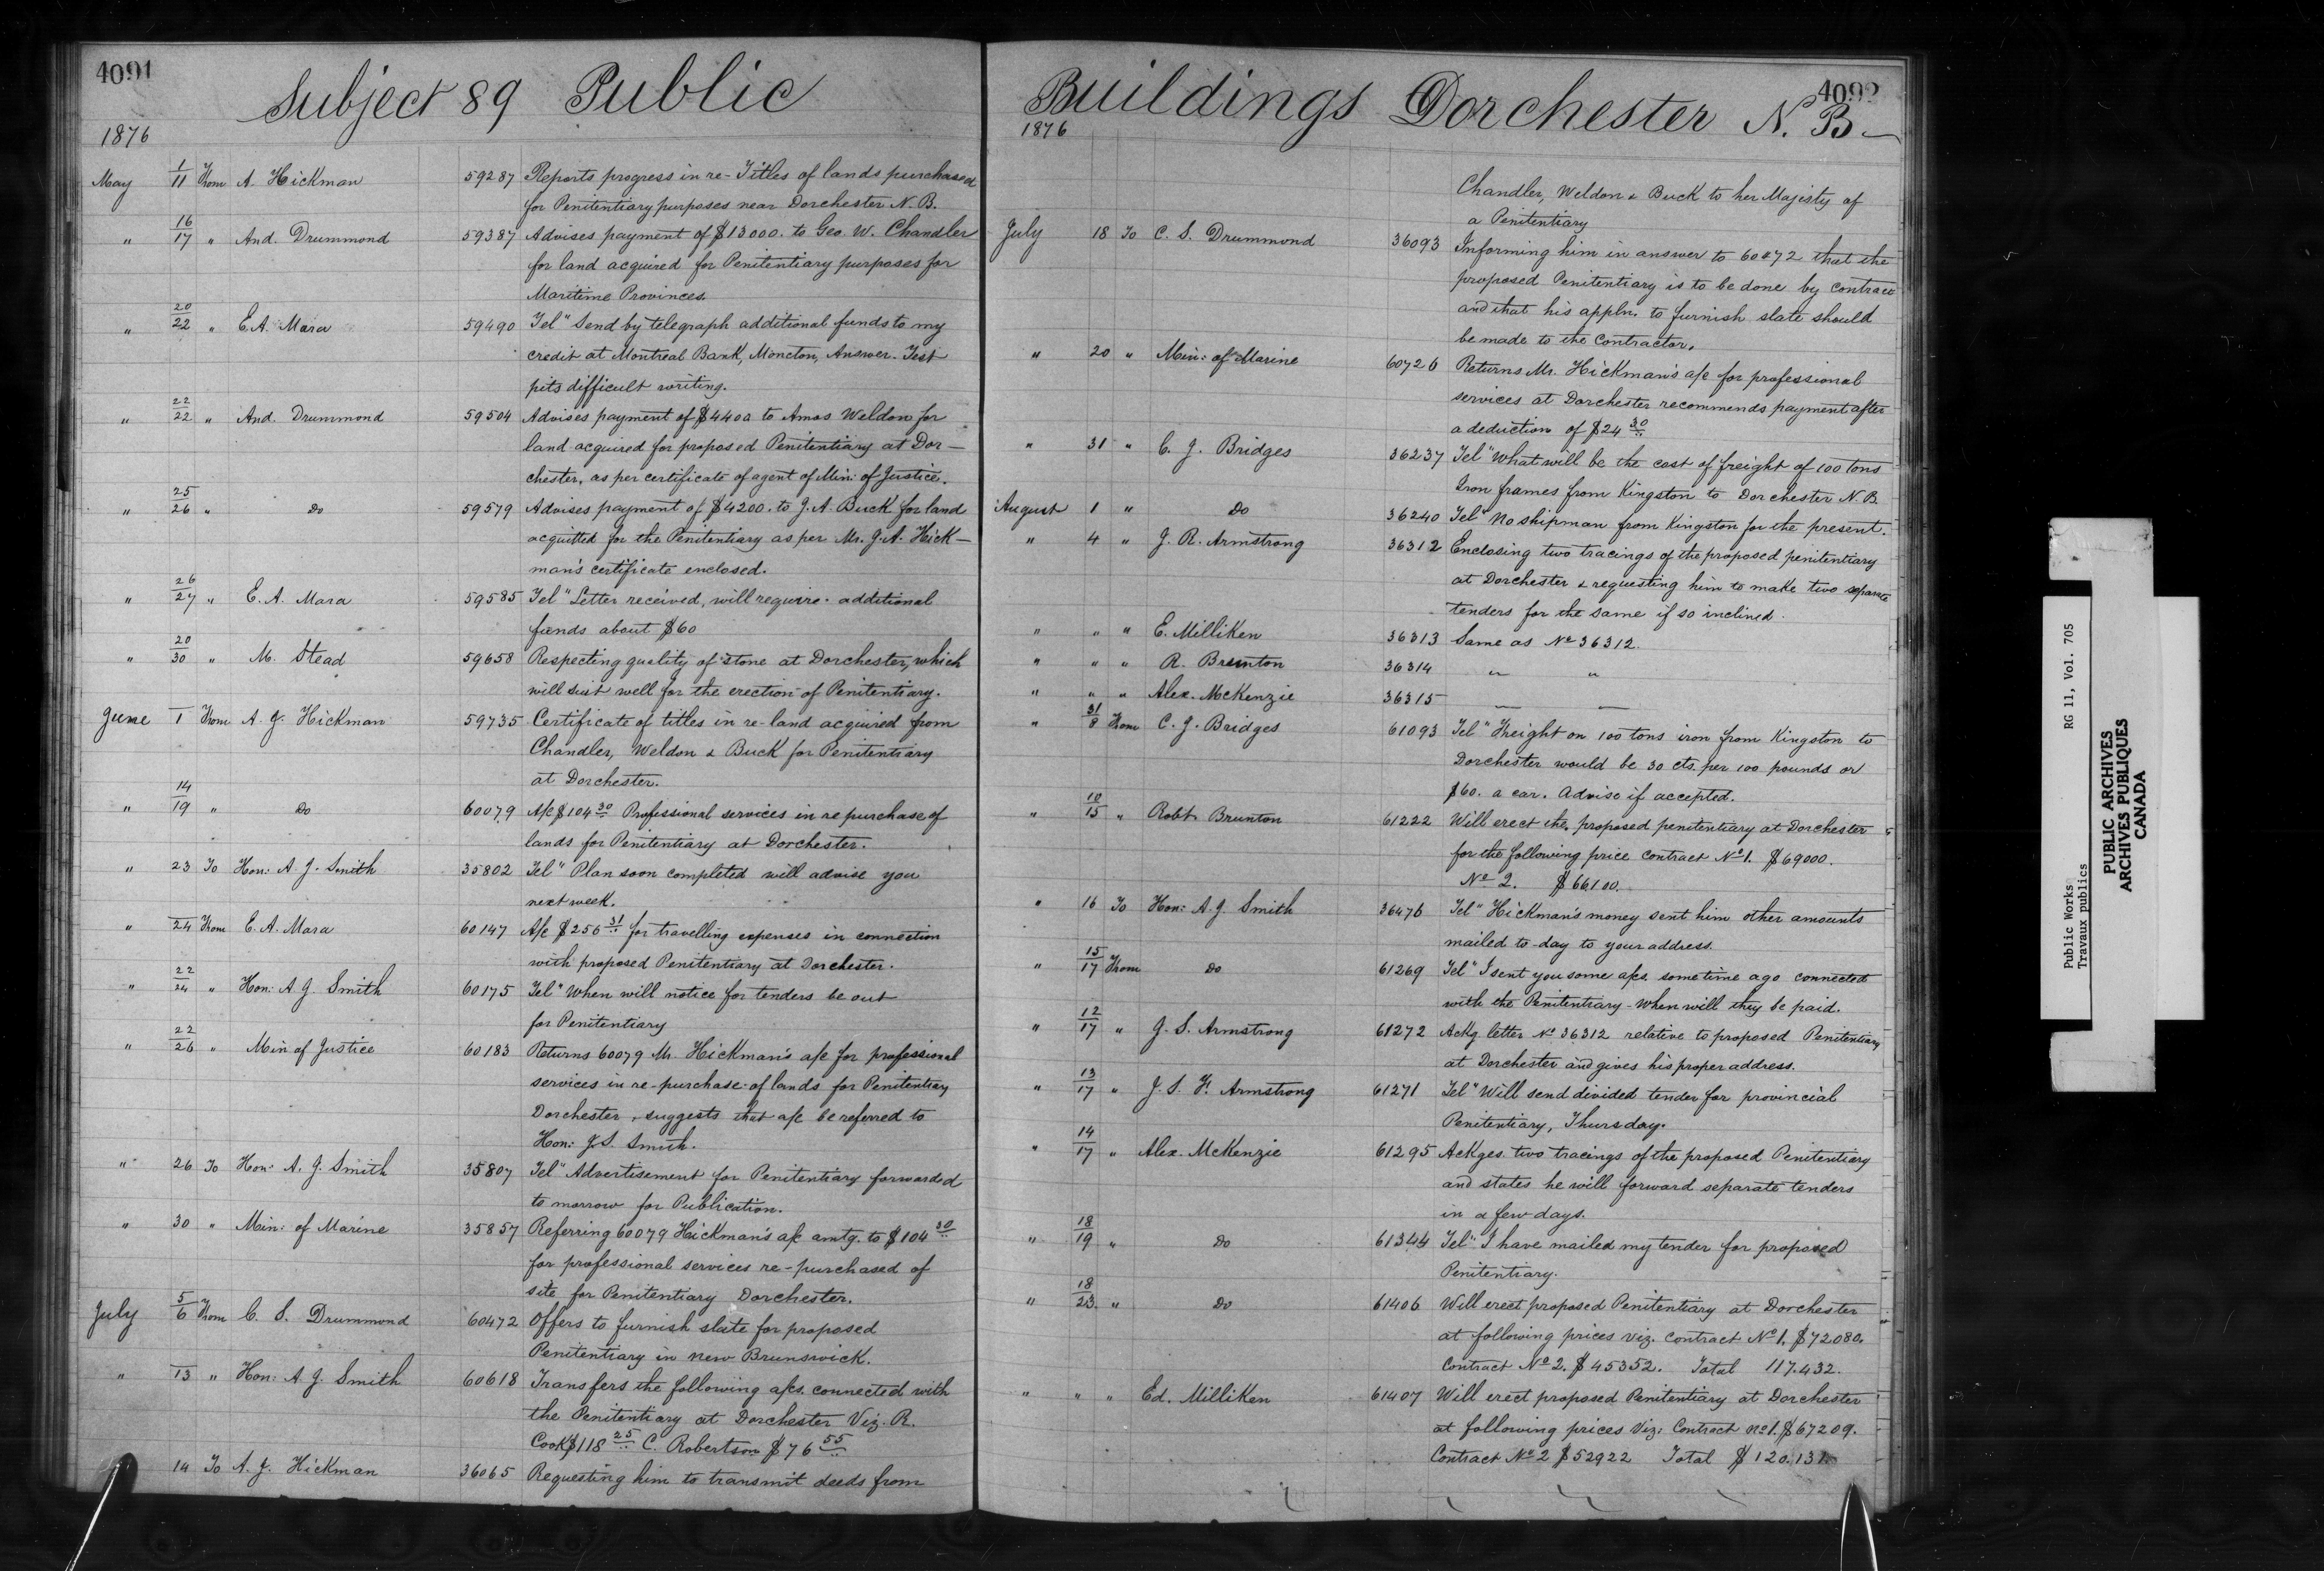 4091
Subject 89 Public
1876
May 1/11 From A. Hickman 59287 Reports progress in re-Titles of lands purchased
for Penitentiary purposes near Dorchester N.B.
" 16/17 " And. Drummond 59387 Advises payment of $13000. to Geo. W. Chandler
for land acquired for Penitentiary purposes for
Maritime Provinces.
" 20/22 " E.A. Mara 59490 Tel" Send by telegraph additional funds to my
credit at Montreal Bank, Moncton, Answer. Test
pits difficult writing.
" 22/22 " And. Drummond 59504 Advises payment of $4400 to Amos Weldon for
land acquired for proposed Penitentiary at Dor-
chester, as per certificate of agent of Min: of Justice.
" 25/26 " Do 59579 Advises payment of $4200. to J.A. Buck for land
acquitted for the Penitentiary as per Mr. J.A. Hick-
man's certificate enclosed.
" 26/27 " E. A. Mara 59585 Tel" Letter received, will require additional
funds about $60
" 20/30 " M. Stead 59658 Respecting quality of stone at Dorchester, which
will suit well for the erection of Penitentiary.
June 1 From A. J. Hickman 59735 Certificate of titles in re-land acquired from
Chandler, Weldon & Buck for Penitentiary
at Dorchester.
" 14/19 " Do 60079 A/c $104 30 Professional services in re purchase of
lands for Penitentiary at Dorchester.
" 23 To Hon: A. J. Smith 35802 Tel" Plan soon completed will advise you
next week.
" 24 From E. A. Mara 60147 A/c $256 31 for travelling expenses in connection
with proposed Penitentiary at Dorchester.
" 22/24 " Hon: A J. Smith 60175 Tel" When will notice for tenders be out
for Penitentiary
" 22/26 " Min of Justice 60183 Returns 60079 Mr. Hickman's a/c for professional
services in re-purchase of lands for Penitentiary
Dorchester, suggests that a/c be referred to
Hon: J.S. Smith.
" 26 To Hon: A. J. Smith 35807 Tel" Advertisement for Penitentiary forwarded
to morrow for Publication.
" 30 " Min: of Marine 35857 Referring 60079 Hickman's a/c amtg. to $104 30
for professional services re-purchased of
site for Penitentiary Dorchester.
July 5/6 From C. S. Drummond 60472 Offers to furnish slate for proposed
Penitentiary in New Brunswick.
" 13 " Hon: A. J. Smith 60618 Transfers the following a/cs. connected with
the Penitentiary at Dorchester Viz. R.
Cook $118 25 C. Robertson $76 55
14 To A. J. Hickman 36065 Requesting him to transmit deeds from
4092
Buildings Dorchester N. B.
1876
Chandler, Weldon & Buck to her Majesty of
a Penitentiary
July 18 To C. S. Drummond 36093 Informing him in answer to 60472 that the
proposed Penitentiary is to be done by contract
and that his appln. to furnish slate should
be made to the Contractor.
" 20 " Min: of Marine 60726 Returns Mr. Hickman's a/c for professional
services at Dorchester recommends payment after
a deduction of $24 30
" 31 " C. J. Bridges 36237 Tel" What will be the cost of freight of 100 tons
Iron frames from Kingston to Dorchester N.B.
August 1 " Do 36240 Tel" No shipman from Kingston for the present.
" 4 " J. R. Armstrong 36312 Enclosing two tracings of the proposed penitentiary
at Dorchester & requesting him to make two separate
tenders for the same if so inclined.
" " " E. Milliken 36313 Same as No 36312.
" " " R. Brunton 36314 " "
" " " Alex. McKenzie 36315 " "
" 31/8 From C. J. Bridges 61093 Tel" Freight on 100 tons iron from Kingston to
Dorchester would be 30 cts. per 100 pounds or
$60. a car. Advise if accepted.
" 10/15 " Robt. Brunton 61222 Will erect the proposed penitentiary at Dorchester
for the following price contract No 1. $69000.
No 2. $66100.
" 16 To Hon: A. J. Smith 36476 Tel" Hickman's money sent him other amounts
mailed to-day to your address.
" 15/17 From Do 61269 Tel" I sent you some a/cs. sometime ago connected
with the Penitentiary - When will they be paid.
" 12/17 " J. S. Armstrong 61272 Ackg. letter No 36312 relative to proposed Penitentiary
at Dorchester and gives his proper address.
" 13/17 " J. S. F. Armstrong 61271 Tel" Will send divided tender for provincial
Penitentiary, Thursday.
" 14/17 " Alex. McKenzie 61295 Ackges. two tracings of the proposed Penitentiary
and states he will forward separate tenders
in a few days.
" 18/19 " Do 61344 Tel" I have mailed my tender for proposed
Penitentiary.
" 18/23 " Do 61406 Will erect proposed Penitentiary at Dorchester
at following prices viz. contract No 1. $72080.
Contract No 2. $45352. Total 117.432.
" " " Ed. Milliken 61407 Will erect proposed Penitentiary at Dorchester
at following prices Viz: Contract No 1. $67209.
Contract No 2 $52922 Total $120,131.
Public Works RG 11, Vol. 705
Travaux publics
PUBLIC ARCHIVES
ARCHIVES PUBLIQUES
CANADA